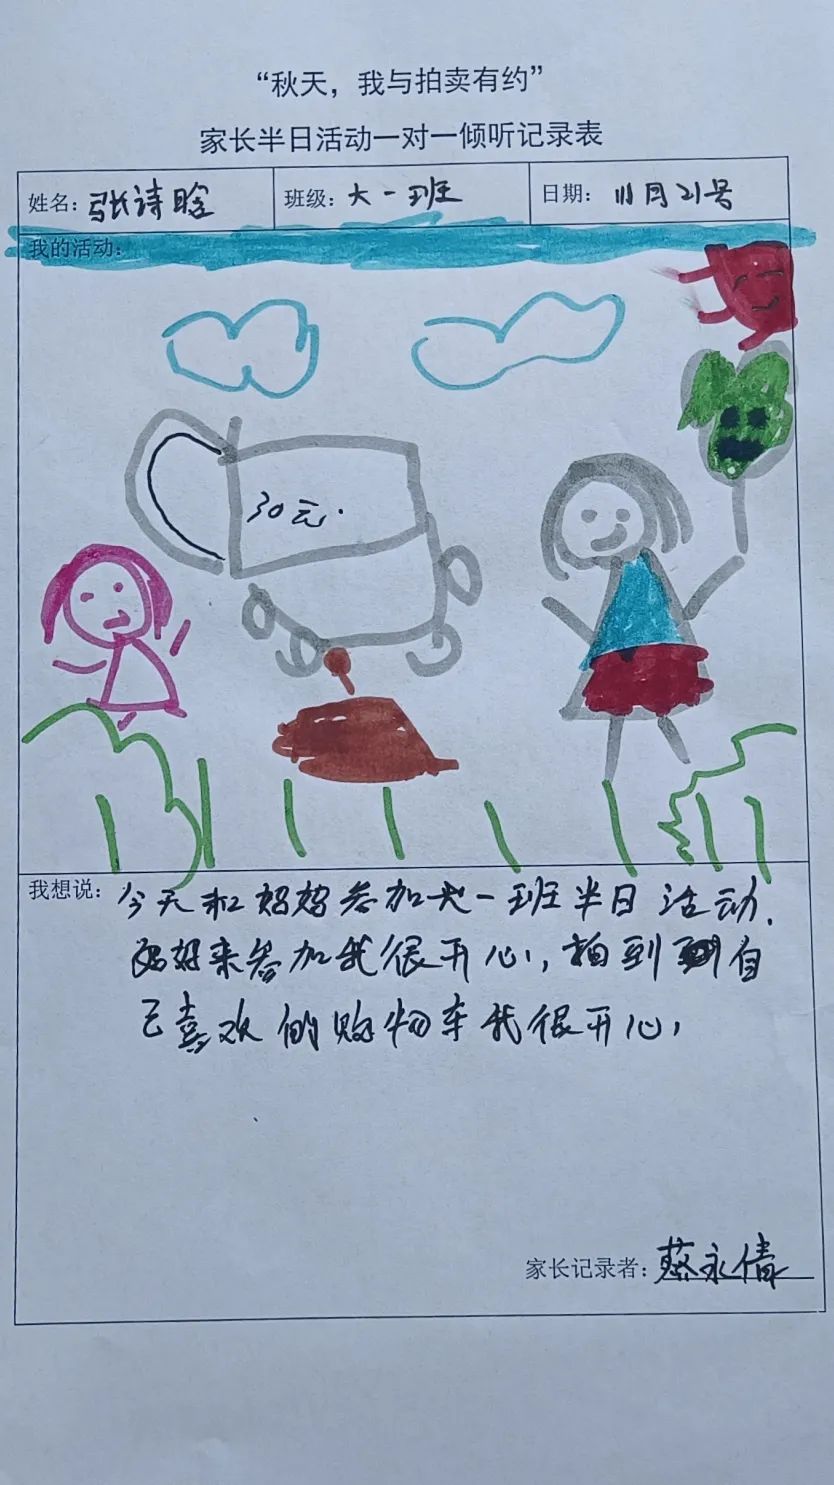 “秋天，我与拍卖有约”
家长半日活动一对一倾听记录表
姓名：张诗晗 班级：大一班 日期：11月21号
我的活动：
30元.
我想说：今天和妈妈参加大一班半日活动.
妈妈来参加我很开心，拍到自
己喜欢的购物车我很开心，
家长记录者：蔡永倩